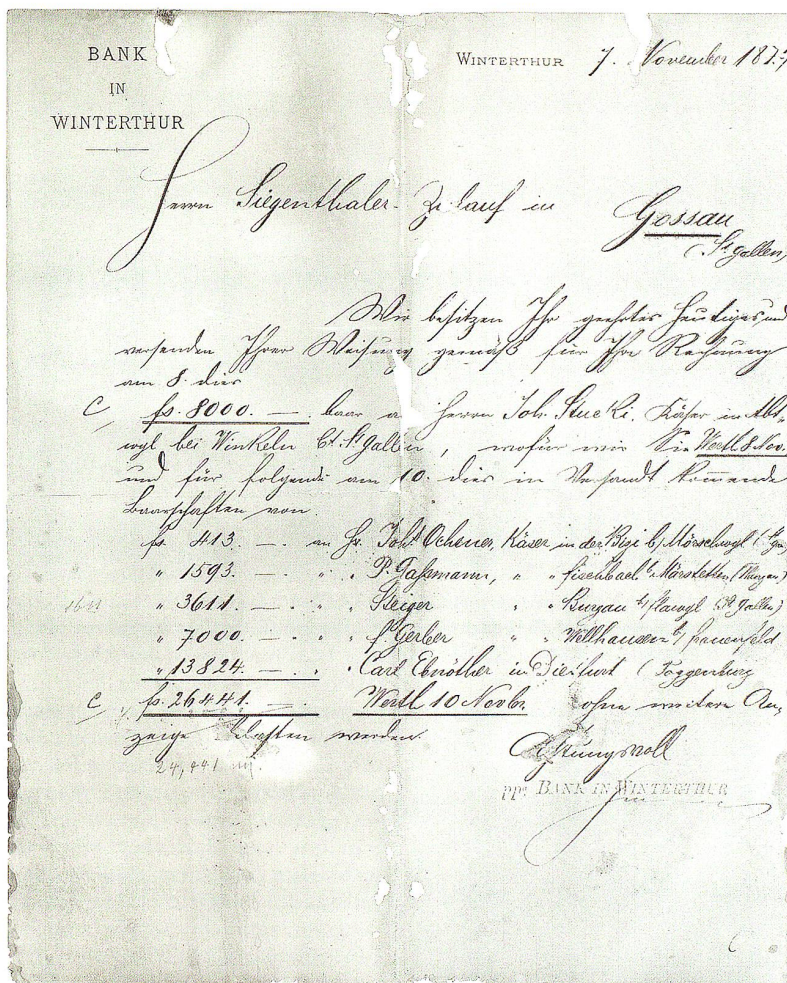 BANK
IN
WINTERTHUR
WINTERTHUR 7. November 187
Herrn Siegenthaler- in
Gossau
(St. Gallen)
Wir besitzen Ihr geehrtes Heutiges und
versenden Ihrer Weisung gemäß für Ihre Rechnung
am 8. dies
C fs. 8000. — . baar an Herrn Joh. Stucki. Käser in Abt-
wyl bei Winkeln Ct. St. Gallen, wofür wir Sie Werth 8 Nov.
und für folgende am 10. dies in Versandt kommende
Baarschaften von.
fs. 413. — . an Hr. Ochsner, Käser in der b/ Mörschwyl
" 1593. — . " " P. Gaßmann, " " Fischbach b/ Märstetten
" 3611. — . " " Steiger " " Burgau b/ Flawyl (St. Gallen)
" 7000. — . " " F. Gerber " " Wellhausen b/ Frauenfeld
" 13824. — . " " Carl Ebnöther in Dietfurt (Toggenburg
C fs. 26441. — . Werth 10 Novbr. ohne weitere An-
zeige belasten werden.
Achtungsvoll
24,441
ppa BANK IN WINTERTHUR